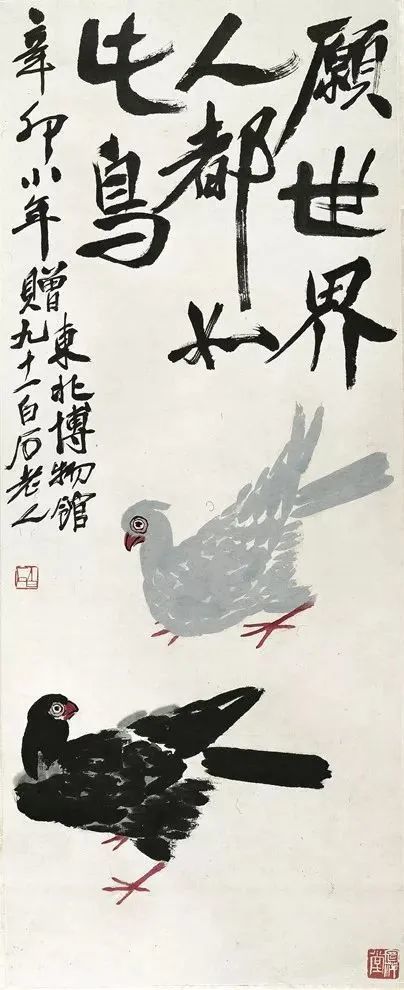 願世界
人都如
此鳥
辛卯小年贈
東北博物館
九十一白石老人
白石